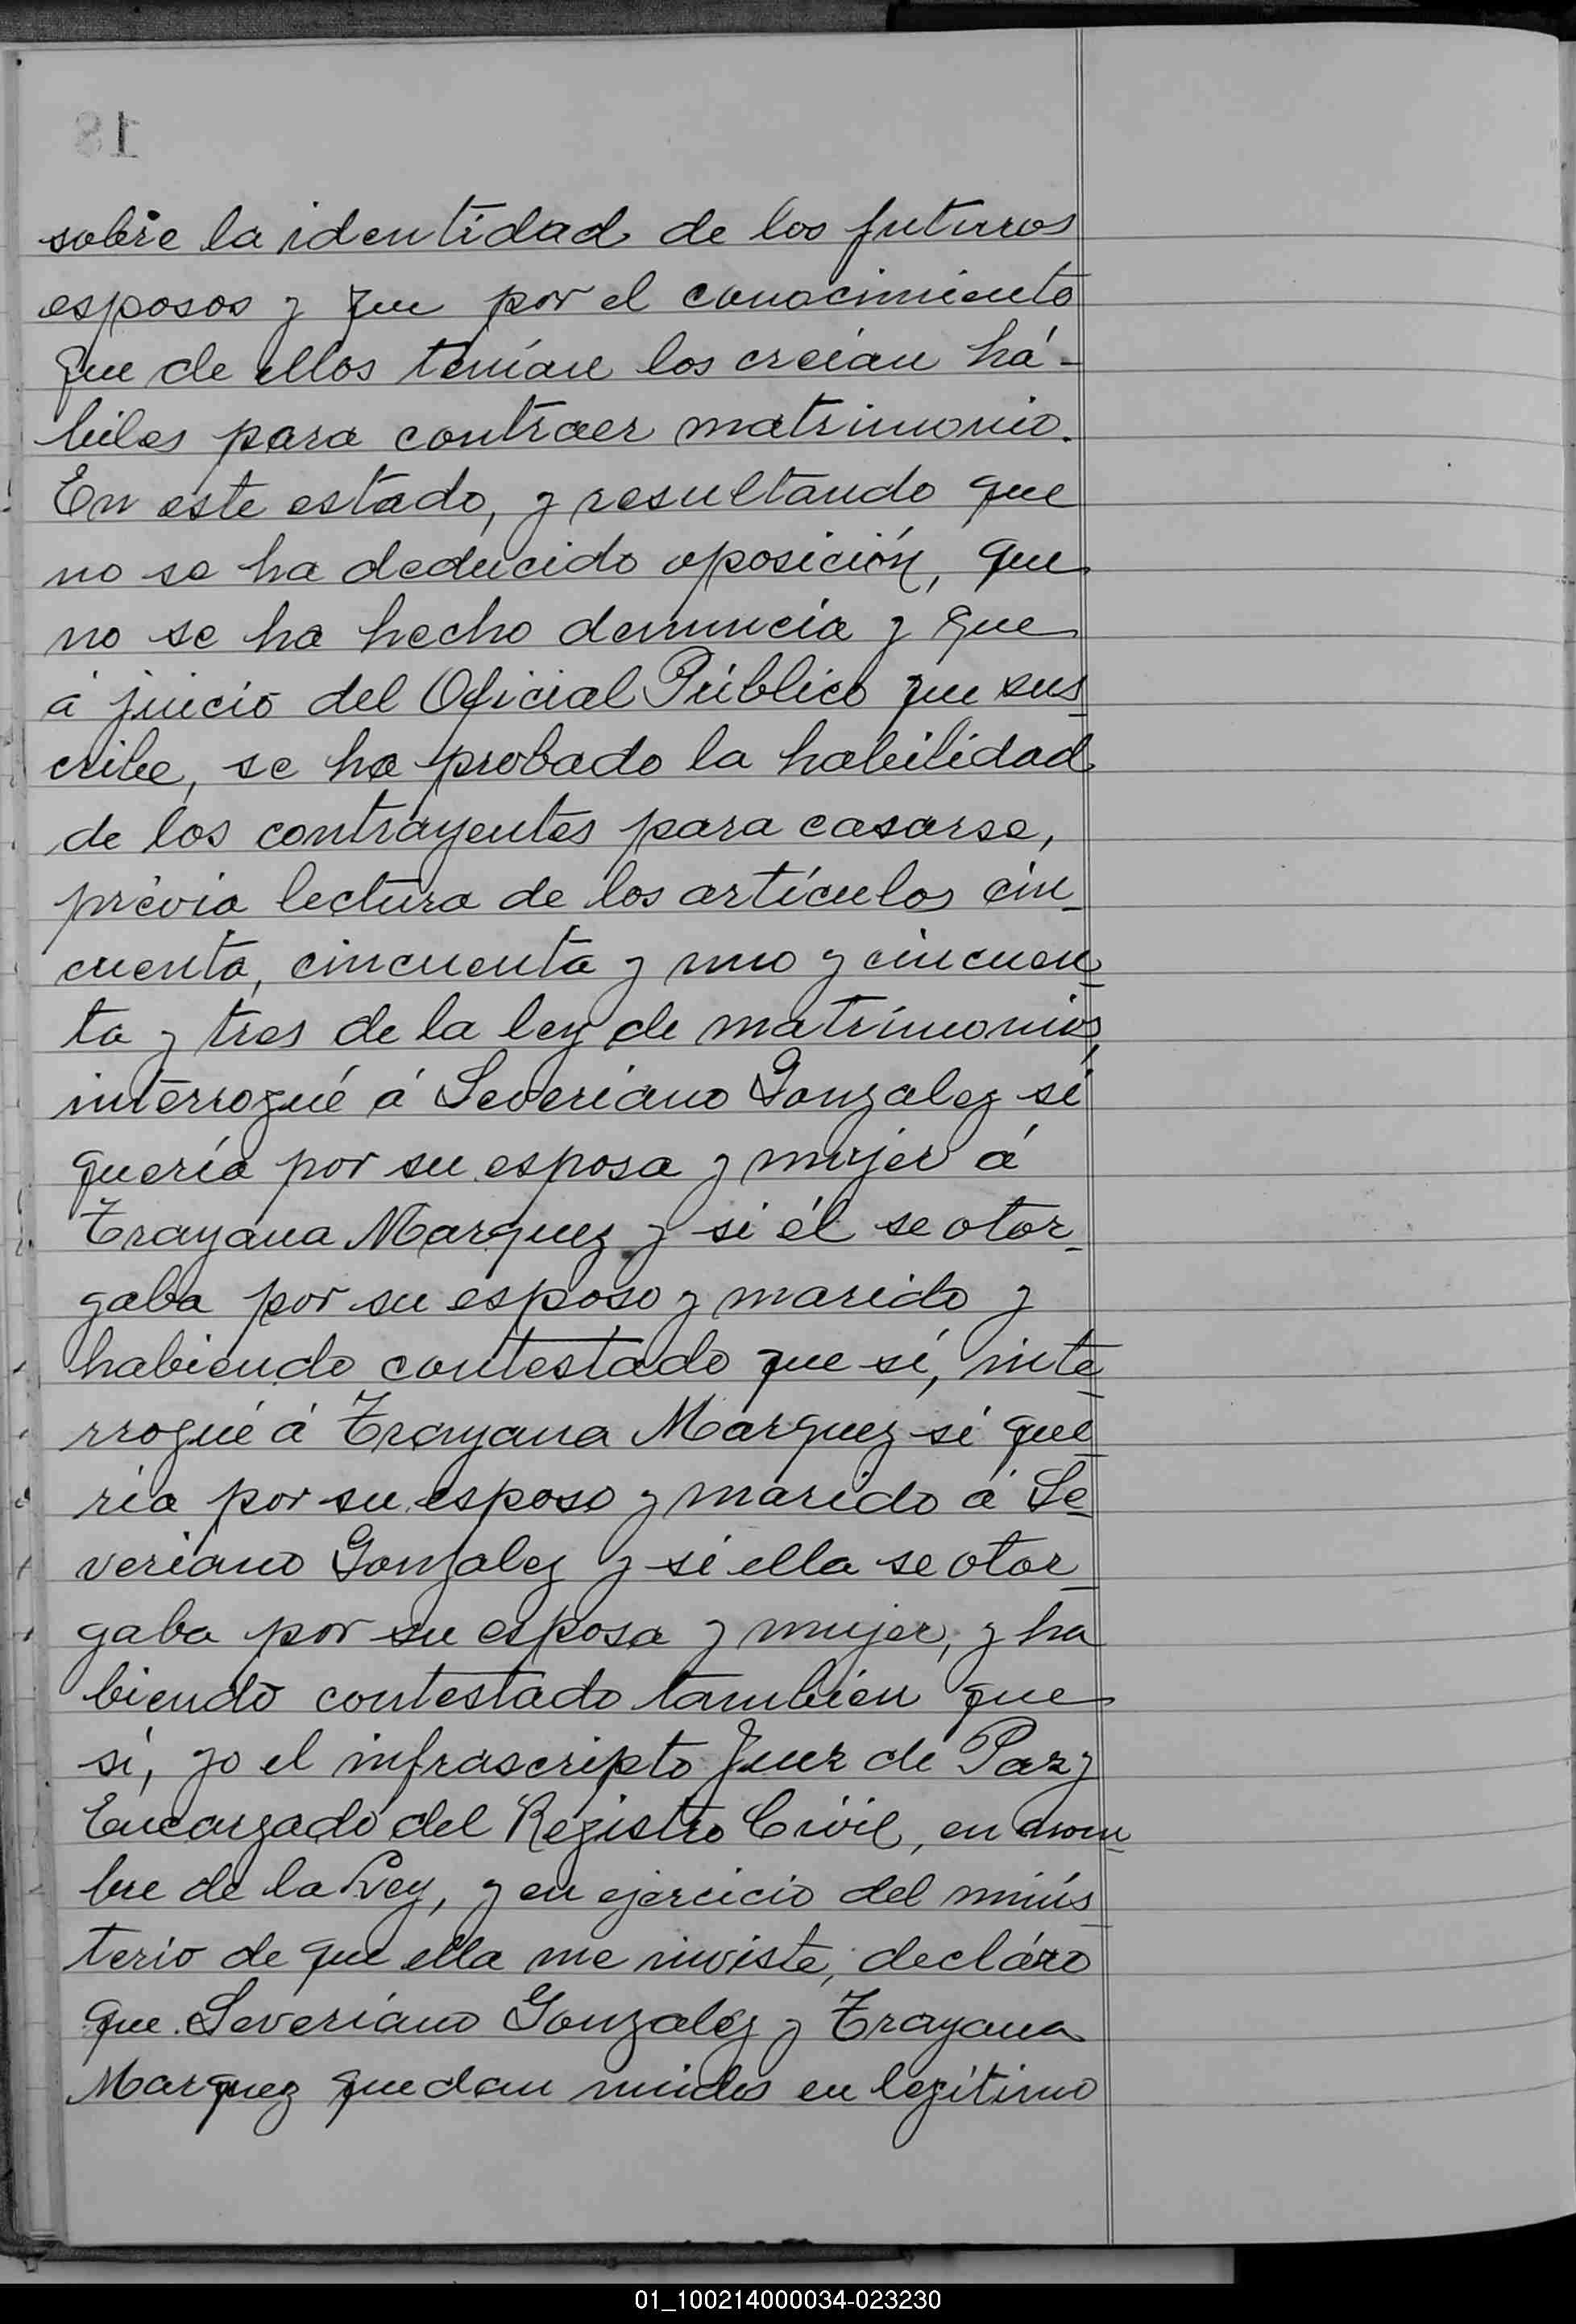 18
sobre la identidad de los futuros
esposos y que por el conocimiento
que de ellos tenían los creían há-
biles para contraer matrimonio.
En este estado, y resultando que
no se ha deducido oposición, que
no se ha hecho denuncia y que
á juicio del Oficial Público que sus-
cribe, se ha probado la habilidad
de los contrayentes para casarse,
prévia lectura de los artículos cin-
cuenta, cincuenta y uno y cincuen-
ta y tres de la ley de matrimonios,
interrogué á Severiano Gonzalez si
quería por su esposa y mujer á
Trayana Marquez y si él se otor-
gaba por su esposo y marido y
habiendo contestado que sí, inte-
rrogué á Trayana Marquez si que-
ría por su esposo y marido á Se-
veriano Gonzalez y si ella se otor-
gaba por su esposa y mujer, y ha-
biendo contestado también que
sí, yo el infrascripto Juez de Paz y
Encargado del Registro Civil, en nom-
bre de la Ley, y en ejercicio del minis-
terio de que ella me inviste, decláro
que Severiano Gonzalez y Trayana
Marquez quedan unidos en legítimo
01_100214000034-023230